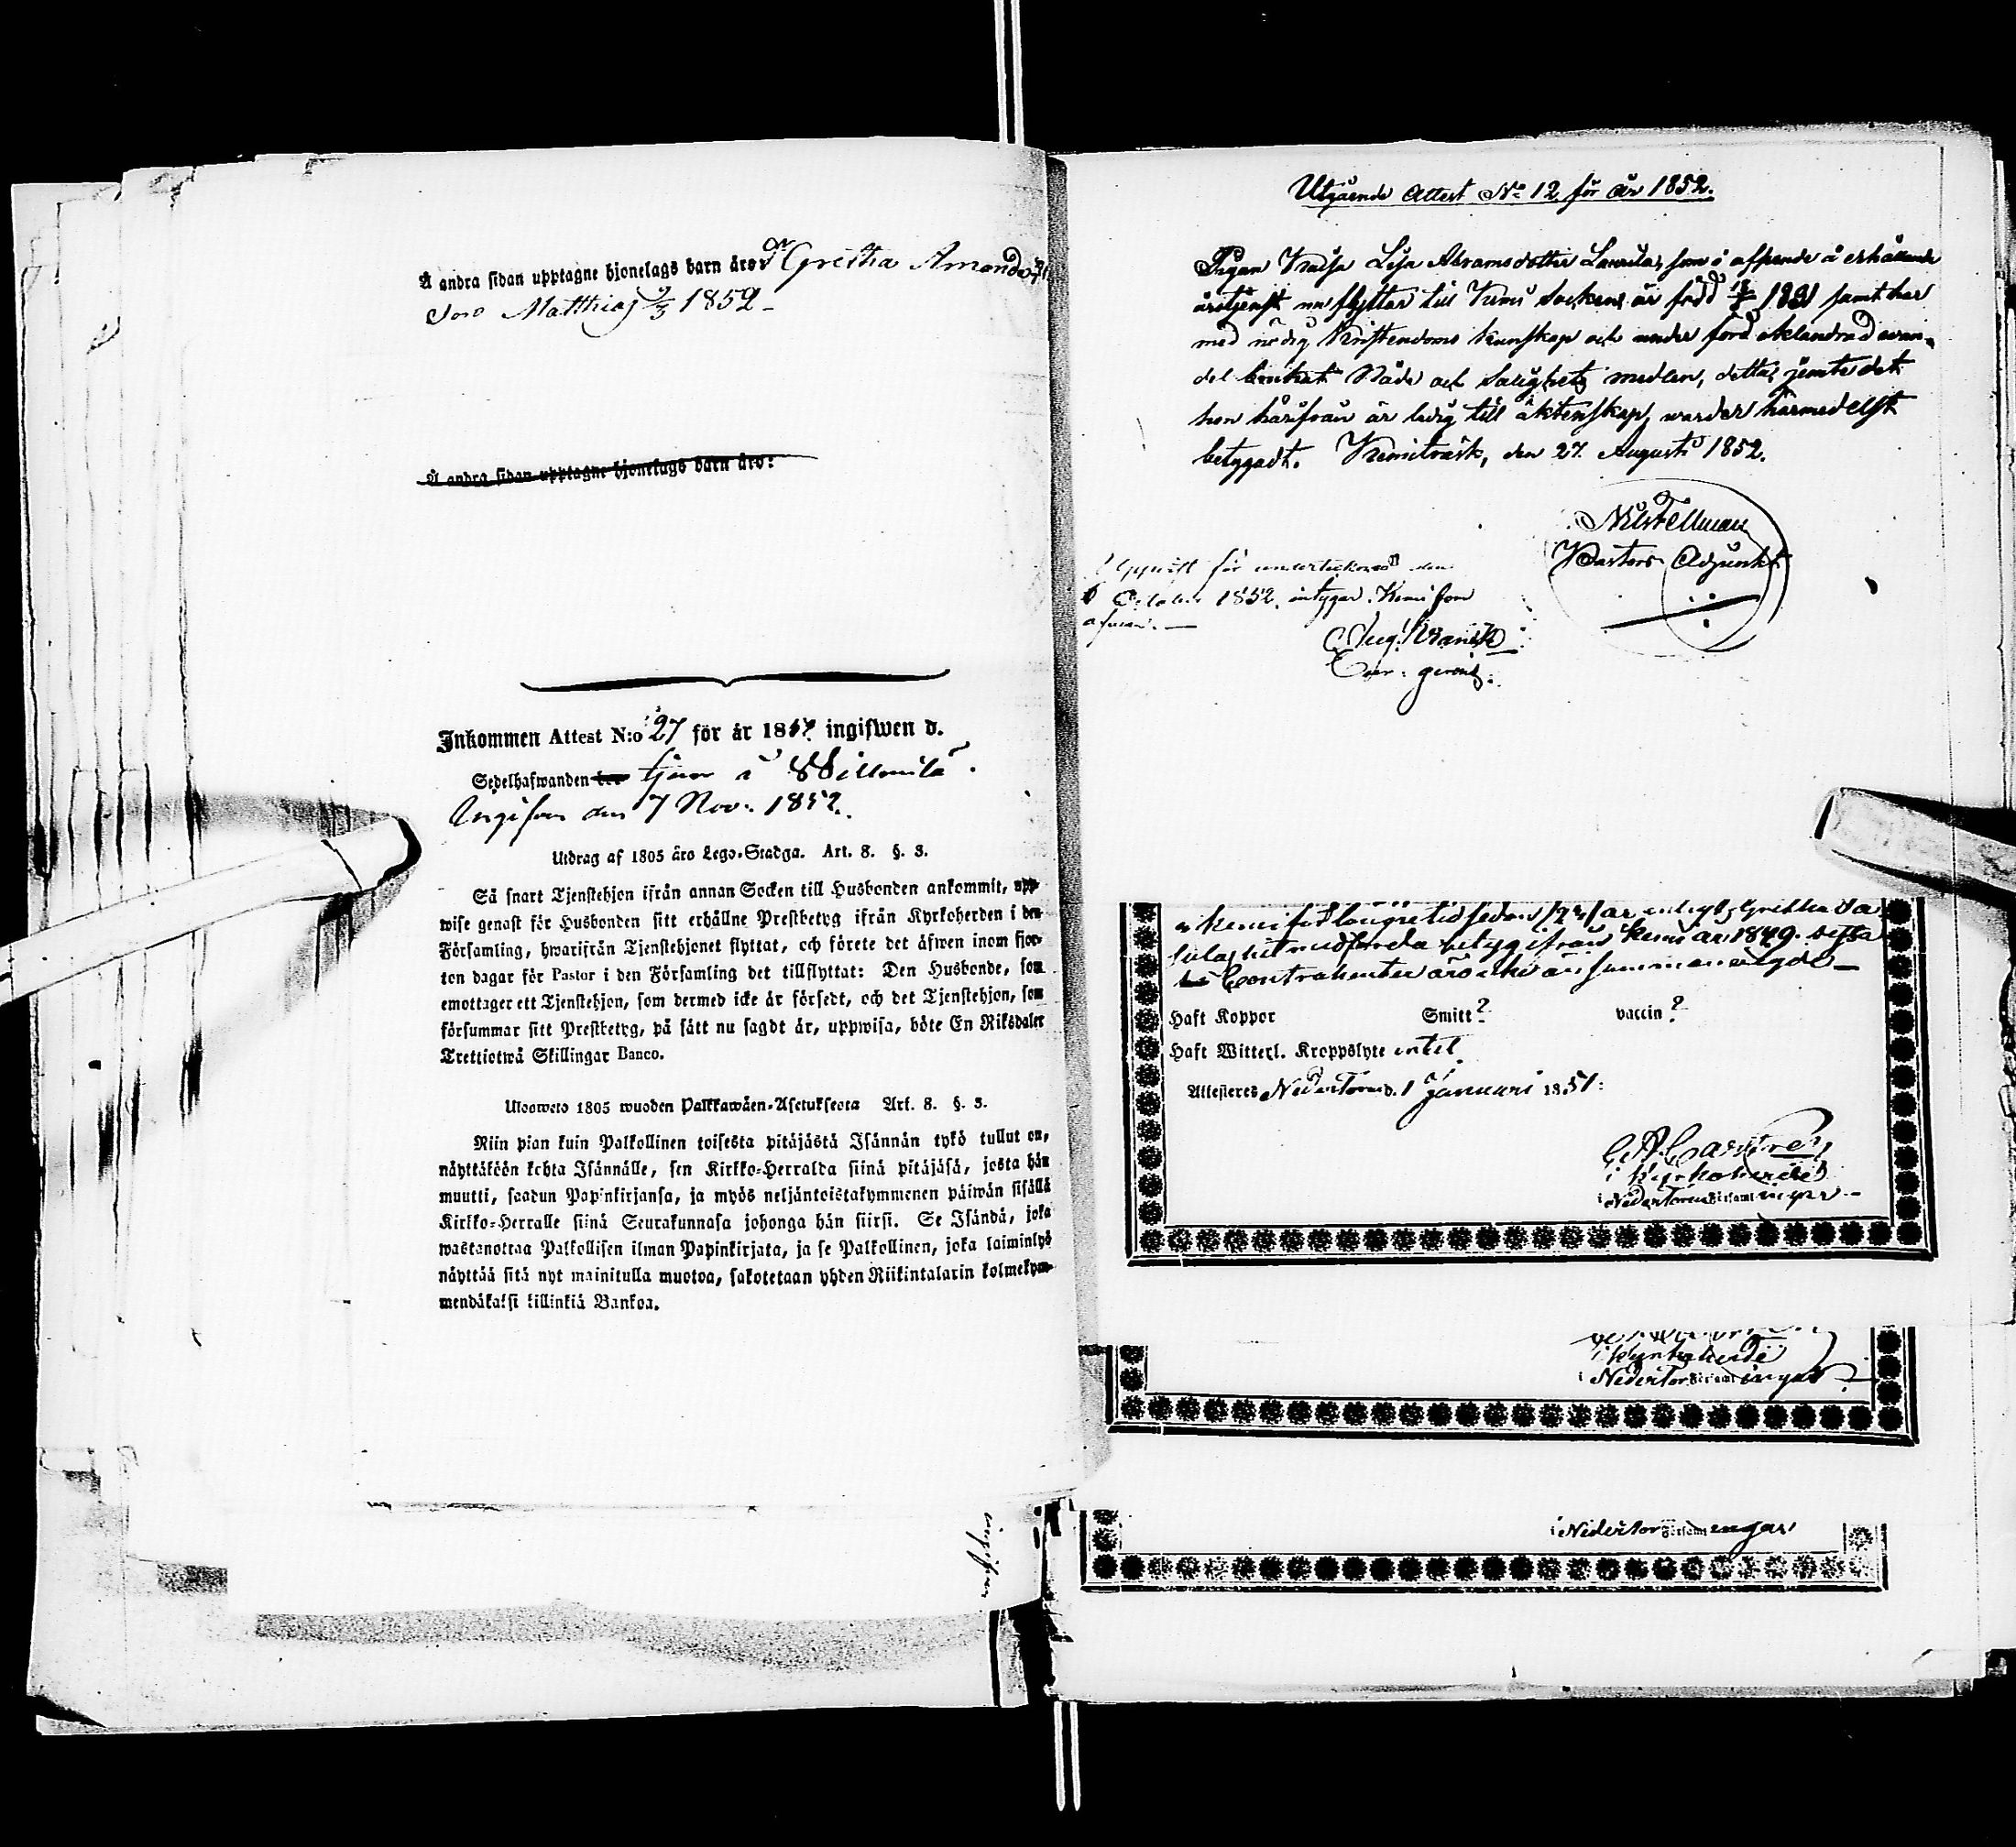 Å andra sidan upptagne hjonelags barn äro: Gretha Amanda
Son Matthias 1852
Å andra sidan upptagne hjonelags barn äro:
Inkommen Attest N:o 27 för år 1852 ingifwen d.
Sedelhafwanden tjenar i
Ingifven den 7 Nov: 1852.
Utdrag af 1805 års Lego-Stadga. Art. 8. §. 3.
Så snart Tjenstehjon ifrån annan Socken till Husbonden ankommit, upp-
wise genast för Husbonden sitt erhållne Prestbetyg ifrån Kyrkoherden i den
Församling, hwarifrån Tjenstehjonet flyttat, och förete det äfwen inom fjor-
ton dagar för Pastor i den Församling det tillflyttat: Den Husbonde, som
emottager ett Tjenstehjon, som dermed icke är försedt, och det Tjenstehjon, som
försummar sitt Prestbetyg, på sätt nu sagdt är, uppwisa, böte En Riksdaler
Trettiotwå Skillingar Banco.
Ulosweto 1805 wuoden Palkkawäen-Asetuksesta Art. 8. §. 3.
Niin pian kuin Palkollinen toisesta pitäjästä Isännän tykö tullut on,
näyttäköön kohta Isännälle, sen Kirkko-Herralda siinä pitäjäsä, josta hän
muutti, saadun Papinkirjansa, ja myös neljäntoistakymmenen päiwän sisällä
Kirkko-Herralle siinä Seurakunnasa johonga hän siirsi. Se Isändä, joka
wastanottaa Palkollisen ilman Papinkirjata, ja se Palkollinen, joka laiminlyö
näyttää sitä nyt mainitulla muotoa, sakotetaan yhden Riikintalarin kolmekym-
mendäkaksi killinkiä Bankoa.
ingifven
Utgående Attest No 12 för år 1852.
Pigan Walsa Lisa Abramsdotter Laurila, som i afseende å erhållande
årstjenst nu flyttar till Kemi Socken, är född 1831 samt har
med nödig Kristendoms kunskap och under förd oklandrad wan-
del brukat Nåde och Salighets medlen, detta, jemte det
hon härifrån är ledig till äktenskap, warder härmedelst
betygadt. Kemiträsk, den 27 Augusti 1852.
Nils Fellman
Pastors Adjunkt
Uppvist för undertecknad den
October 1852, intygar. Kemi som
ofvan.
Aug. Kranck
i Kemi
betyg ifrån Kemi år 1849.
Contrahenter äro
Haft Koppor Smitt ? vaccin ?
Haft Witterl. Kroppslyte intet
Attesteres NederTorneå d. 1 Januari 1851:
Castrén
i Kyrkoherdes
i NederTorneå Församl ingar
i Kyrkoherde
i NederTor Församl ingar
i NederTor Församl ingar